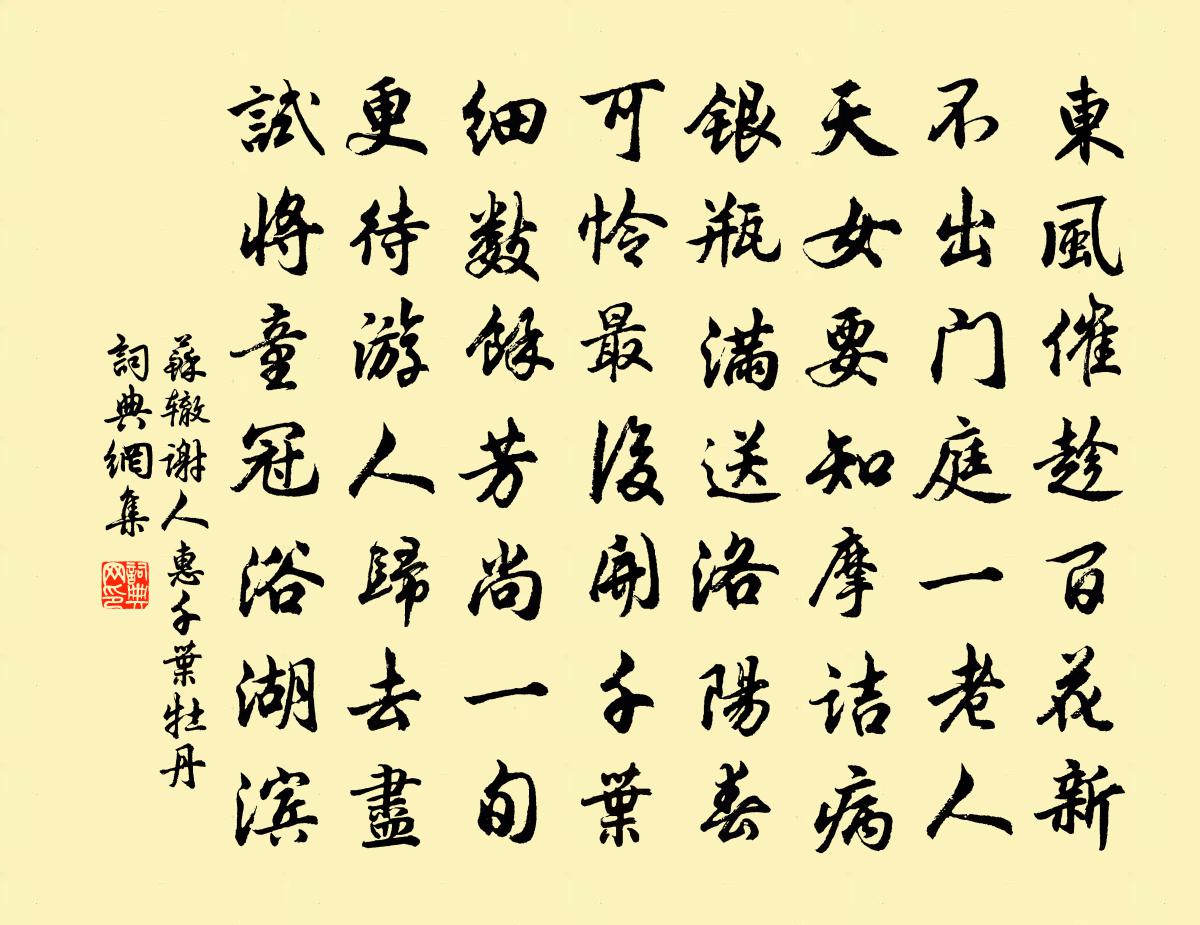 東風催趁百花新
不出門庭一老人
天女要知摩詰病
銀瓶滿送洛陽春
可憐最後開千葉
細數餘芳尚一旬
更待游人歸去盡
試將童冠浴湖滨
蘇辙谢人惠千葉牡丹
詞典網集
詞典网印